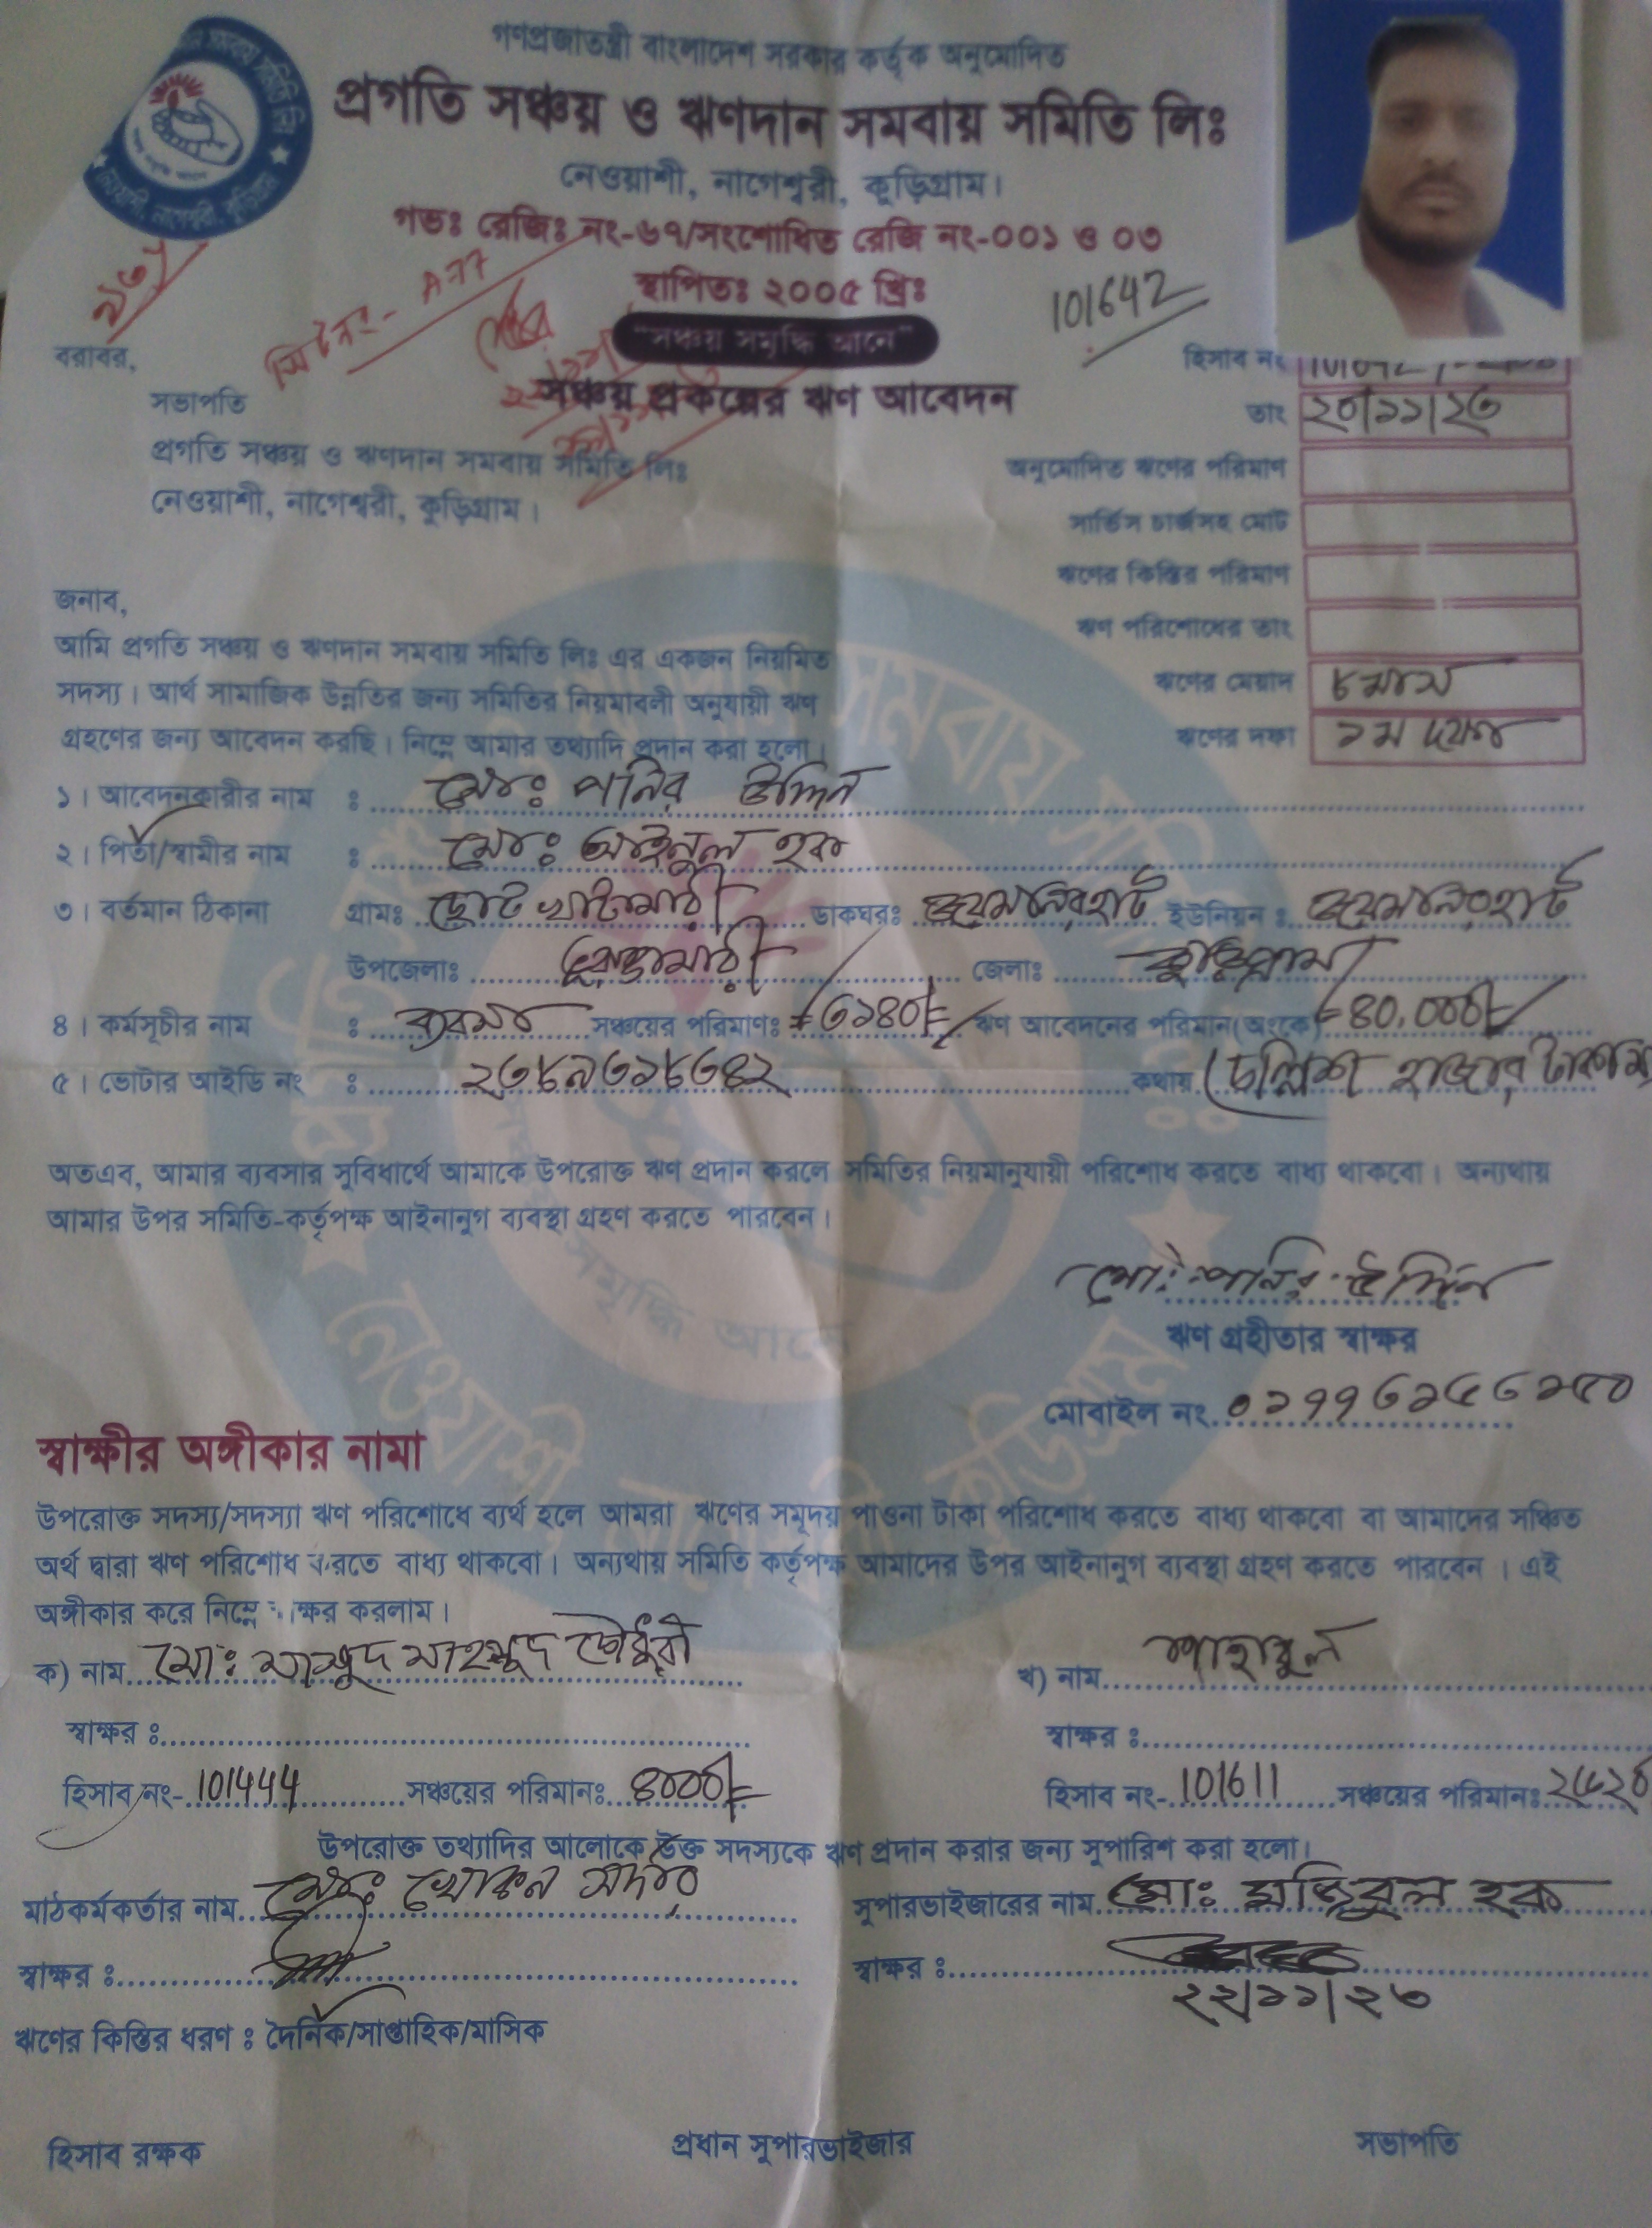 গণপ্রজাতন্ত্রী বাংলাদেশ সরকার কর্তৃক অনুমোদিত
প্রগতি সঞ্চয় ও ঋণদান সমবায় সমিতি লিঃ
নেওয়াশী, নাগেশ্বরী, কুড়িগ্রাম।
গভঃ রেজিঃ নং-৬৭/সংশোধিত রেজি নং-০০১ ও ০৩
স্থাপিতঃ ২০০৫ খ্রিঃ
101642
"সঞ্চয় সমৃদ্ধি আনে"
সঞ্চয় প্রকল্পের ঋণ আবেদন
বরাবর,
সভাপতি
প্রগতি সঞ্চয় ও ঋণদান সমবায় সমিতি লিঃ
নেওয়াশী, নাগেশ্বরী, কুড়িগ্রাম।
হিসাব নং
তাং ২০/১১/২৩
অনুমোদিত ঋণের পরিমাণ
সার্ভিস চার্জসহ মোট
ঋণের কিস্তির পরিমাণ
ঋণ পরিশোধের তাং
ঋণের মেয়াদ ৮ মাস
ঋণের দফা ১ম দফা
জনাব,
আমি প্রগতি সঞ্চয় ও ঋণদান সমবায় সমিতি লিঃ এর একজন নিয়মিত
সদস্য। আর্থ সামাজিক উন্নতির জন্য সমিতির নিয়মাবলী অনুযায়ী ঋণ
গ্রহণের জন্য আবেদন করছি। নিম্নে আমার তথ্যাদি প্রদান করা হলো।
১। আবেদনকারীর নাম : মোঃ পনির উদ্দিন
২। পিতা/স্বামীর নাম : মোঃ আইনুল হক
৩। বর্তমান ঠিকানা গ্রামঃ ছোট খাটামারী ডাকঘরঃ জয়মনিরহাট ইউনিয়ন : জয়মনিরহাট
উপজেলাঃ ভূরুঙ্গামারী জেলাঃ কুড়িগ্রাম
৪। কর্মসূচীর নাম : ব্যবসা সঞ্চয়ের পরিমাণঃ ৩১৪০/= ঋণ আবেদনের পরিমান(অংকে) ৪০,০০০/=
৫। ভোটার আইডি নং : ২৩৮৯৩১৮৩৪২ কথায় (চল্লিশ হাজার টাকা
অতএব, আমার ব্যবসার সুবিধার্থে আমাকে উপরোক্ত ঋণ প্রদান করলে সমিতির নিয়মানুযায়ী পরিশোধ করতে বাধ্য থাকবো। অন্যথায়
আমার উপর সমিতি-কর্তৃপক্ষ আইনানুগ ব্যবস্থা গ্রহণ করতে পারবেন।
মোঃ পনির উদ্দিন
ঋণ গ্রহীতার স্বাক্ষর
মোবাইল নং ০১৭৭৩১৫৩১৫০
স্বাক্ষীর অঙ্গীকার নামা
উপরোক্ত সদস্য/সদস্যা ঋণ পরিশোধে ব্যর্থ হলে আমরা ঋণের সমূদয় পাওনা টাকা পরিশোধ করতে বাধ্য থাকবো বা আমাদের সঞ্চিত
অর্থ দ্বারা ঋণ পরিশোধ করতে বাধ্য থাকবো। অন্যথায় সমিতি কর্তৃপক্ষ আমাদের উপর আইনানুগ ব্যবস্থা গ্রহণ করতে পারবেন। এই
অঙ্গীকার করে নিম্নে স্বাক্ষর করলাম।
ক) নাম মোঃ মাসুদ মাহমুদ চৌধুরী খ) নাম
স্বাক্ষর : স্বাক্ষর :
হিসাব নং- 101444 সঞ্চয়ের পরিমানঃ ৪০০০/= হিসাব নং- 101611 সঞ্চয়ের পরিমানঃ ২৫২০
উপরোক্ত তথ্যাদির আলোকে উক্ত সদস্যকে ঋণ প্রদান করার জন্য সুপারিশ করা হলো।
মাঠকর্মকর্তার নাম মোঃ খোকন সর্দার সুপারভাইজারের নাম মোঃ মজিবুল হক
স্বাক্ষর : স্বাক্ষর :
২২/১১/২৩
ঋণের কিস্তির ধরণ : দৈনিক/সাপ্তাহিক/মাসিক
হিসাব রক্ষক প্রধান সুপারভাইজার সভাপতি